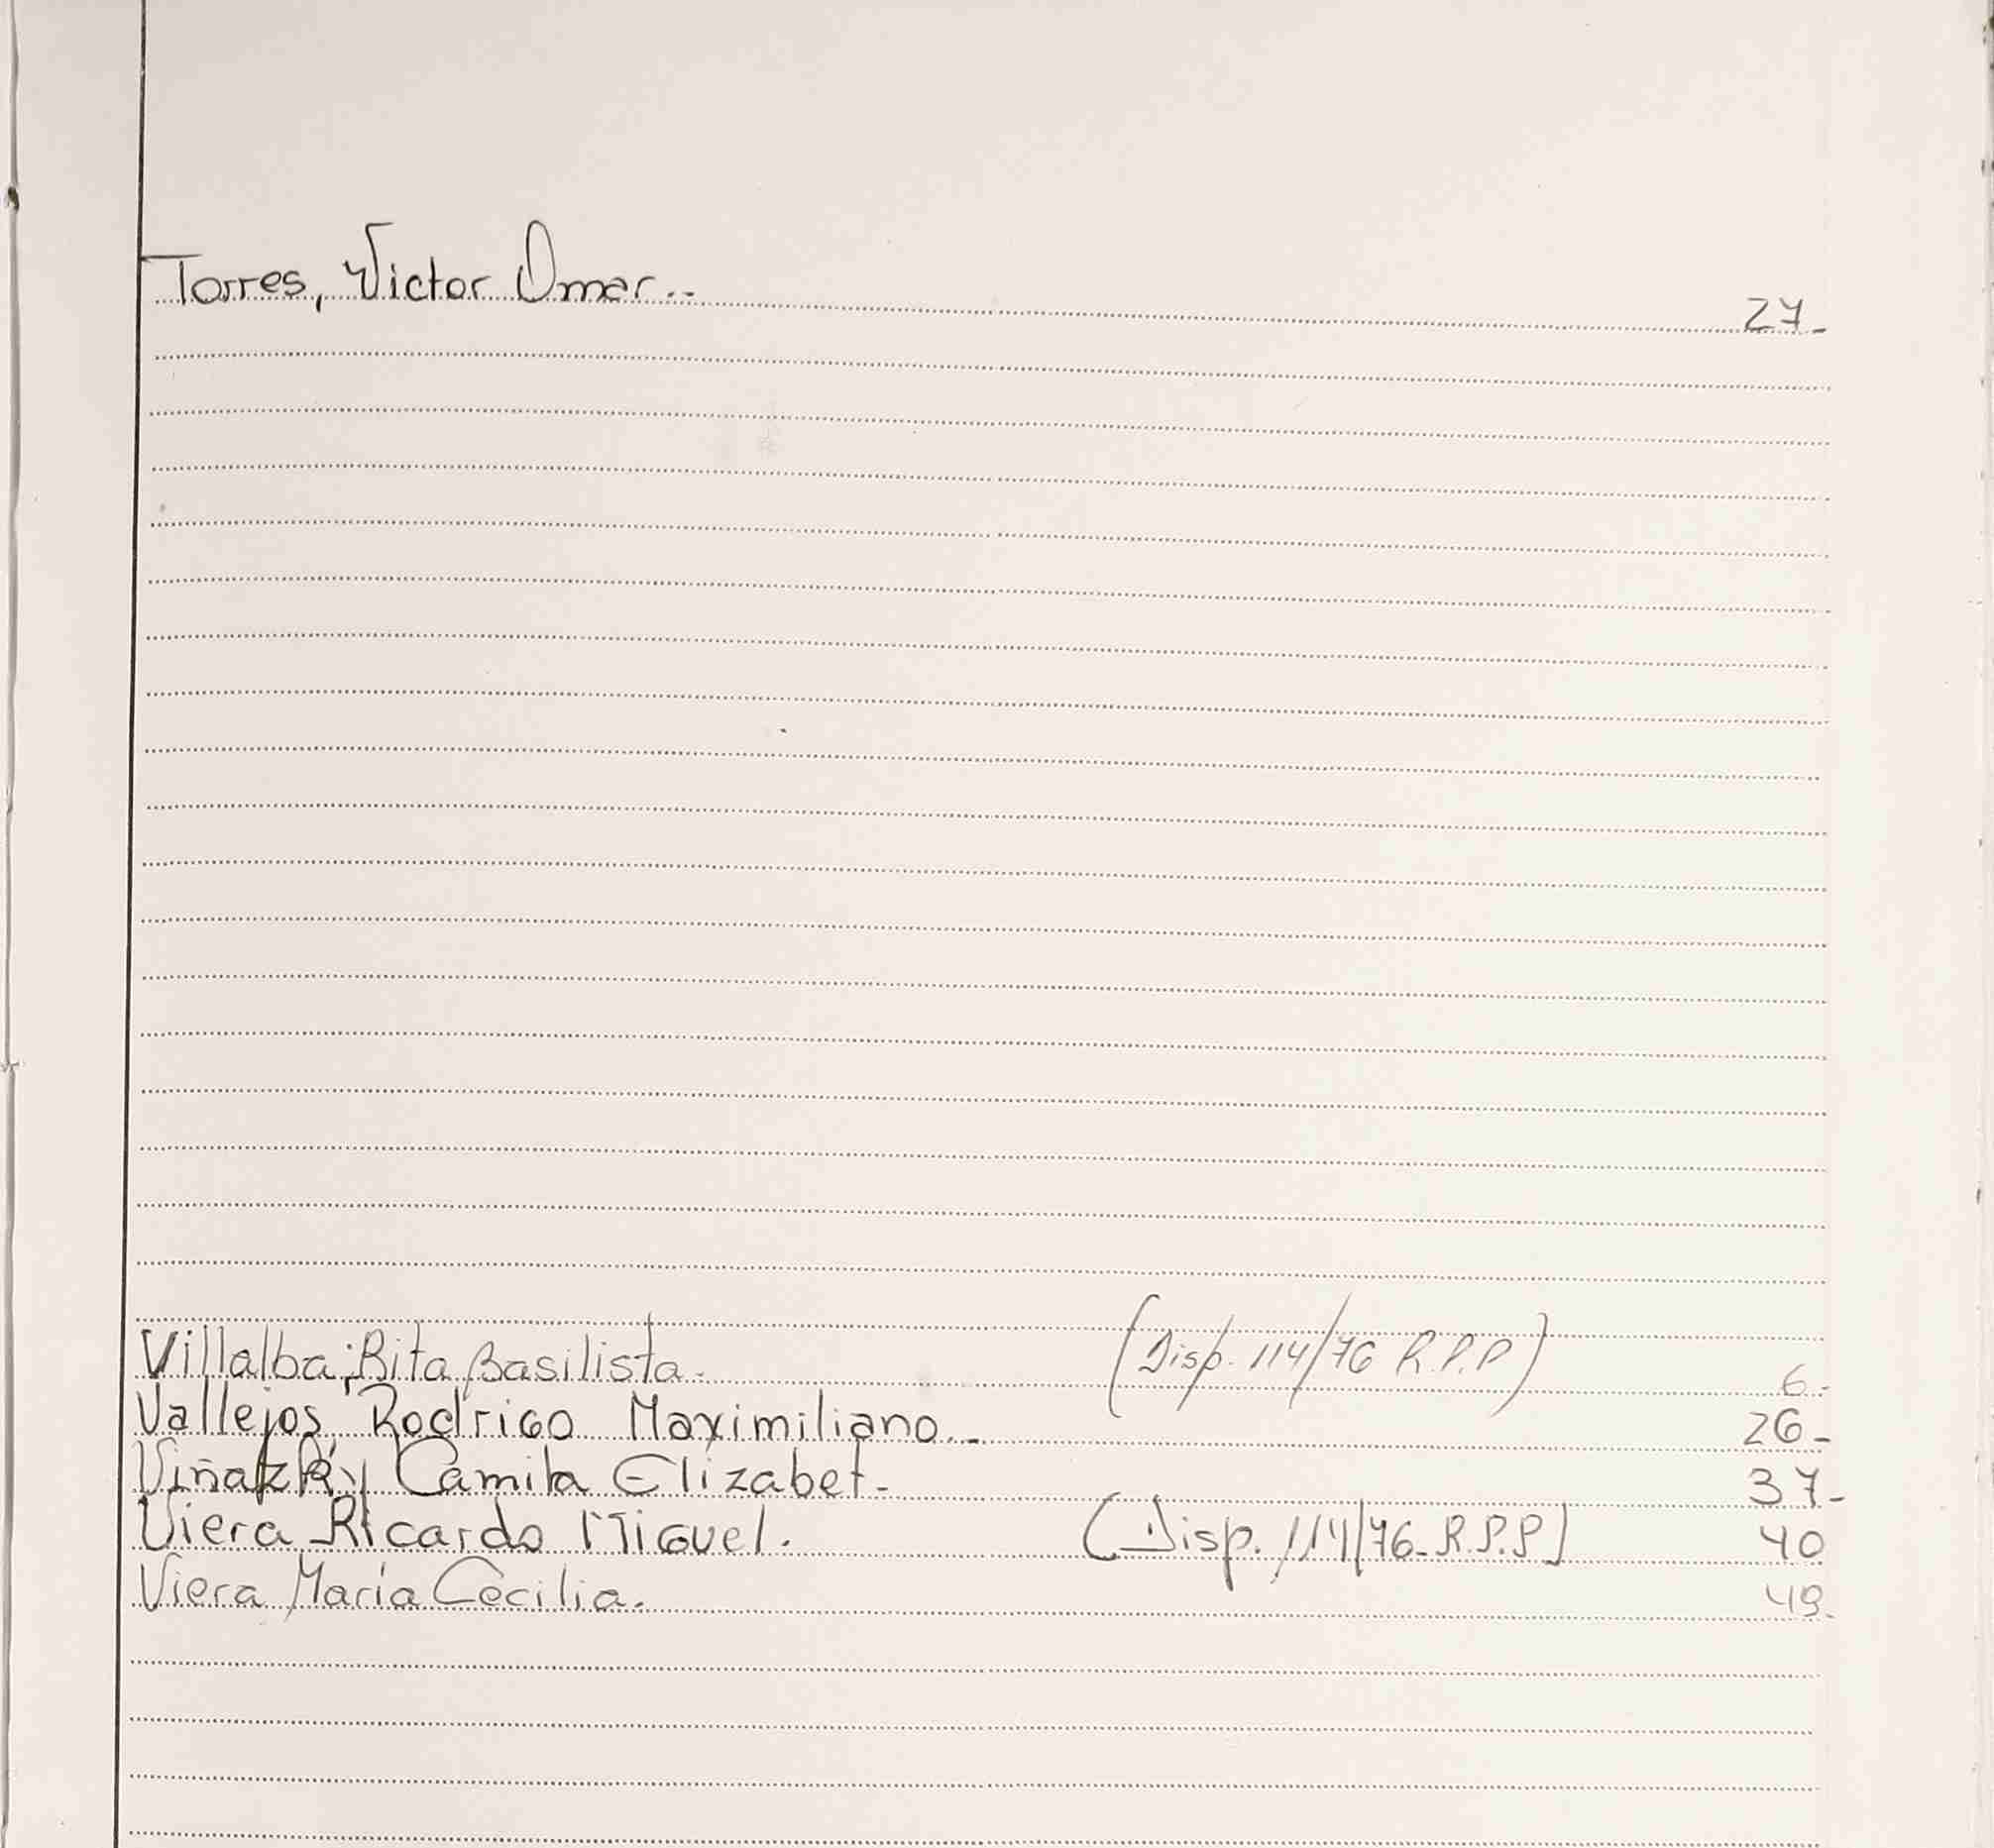 Torres, Victor Omar.. 27-
Villalba, Rita Basilista. (Disp. 114/76 R.P.P) 6.-
Vallejos, Rodrigo Maximiliano.- 26-
Camila Elizabet.- 37-
Viera Ricardo Miguel. (Disp. 114/76- R.P.P) 40
Viera María Cecilia.